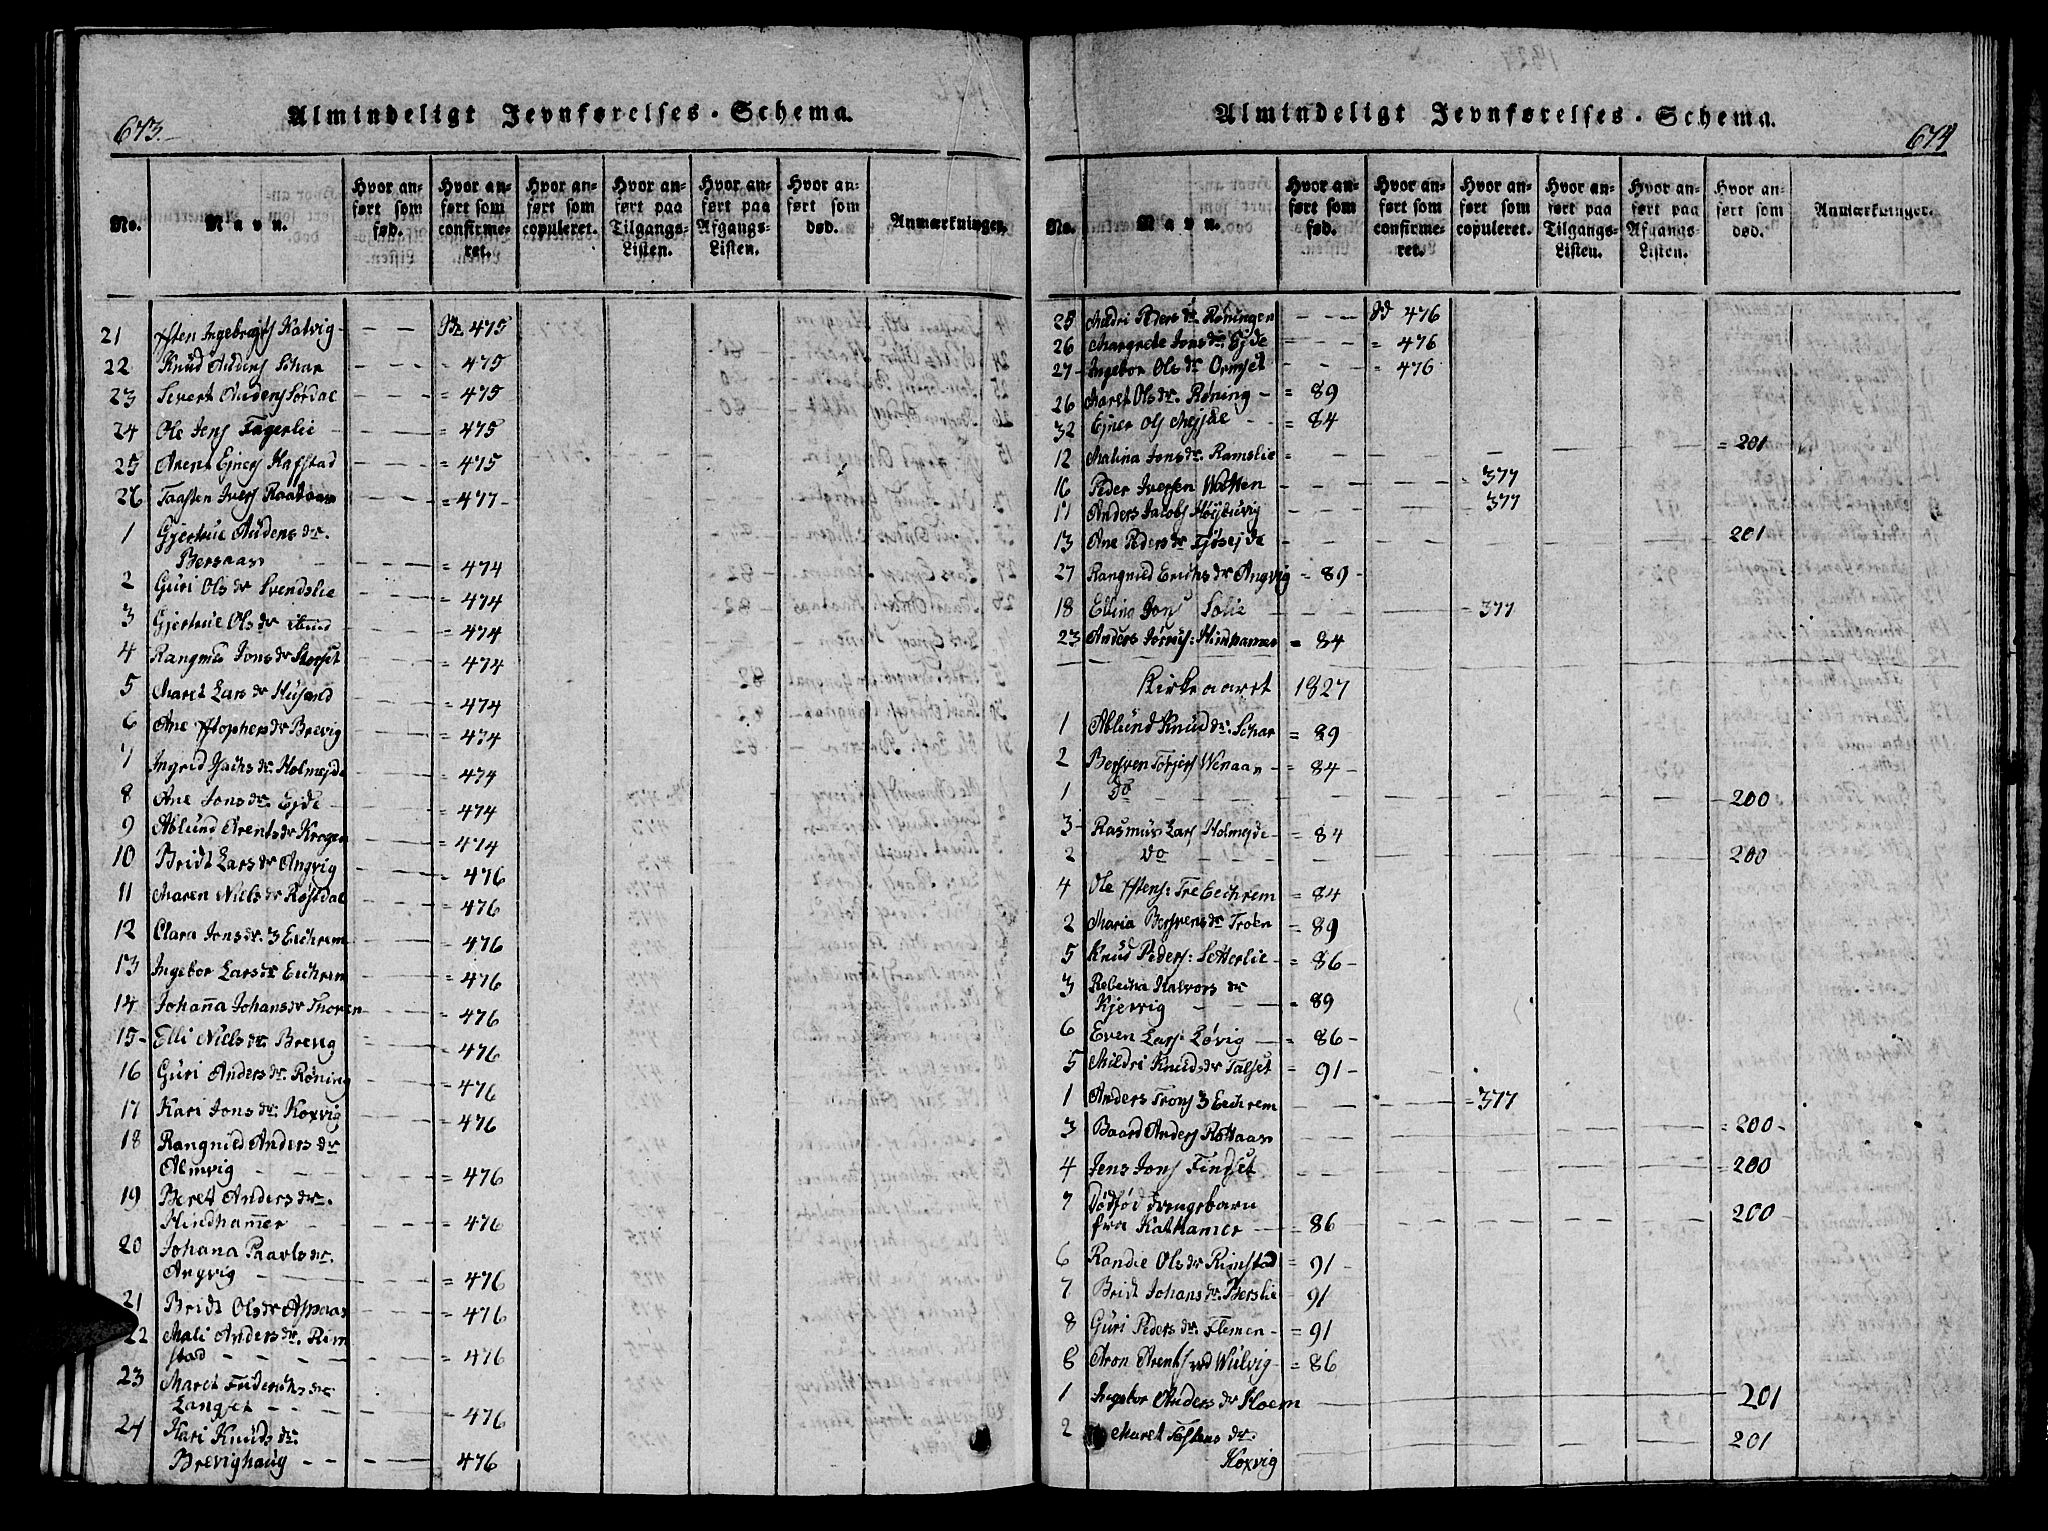 673.
Almindeligt Jevnførelses-Schema.
No.
Navn.
Hvor anført som fød.
Hvor anført som confirmeret.
Hvor anført som copuleret.
Hvor anført paa Tilgangs-Listen.
Hvor anført paa Afgangs-Listen.
Hvor anført som død.
Anmærkninger.
21 Ingebrigts Kalvig - - Pag 475
22 Knud Anders Schar - - - = 475
23 Sivert Anders Sördal - - - = 475
24 Ole Jens Fagerlie - - - = 475
25 Arent Ejners Kafstad - - - = 475
26 Taasten Ivers - - - = 477
1 Gjertrue Audens dr.
- - = 474
2 Guri Ols dr Svendslie - - = 474
3 Gjertrue Ols dr - - = 474
4 Rangnie Jons dr Storset - - = 474
5 Maret Lars dr Husand - - = 474
6 Ane dr Brevig - - = 474
7 Ingrid dr. Holmejde - - = 474
8 Ane Jons dr. Ejde - - = 474
9 Ablund Arents dr Krogen - - = 474
10 Bridt Lars dr Angvig - - = 476
11 Maren Niels dr Røstdal - - = 476
12 Clara Jens dr. 3 Eichrem - - = 476
13 Ingebor Lars dr Eichrem - - = 476
14 Johanna Johans dr Thoren - - = 476
15 Elli Niels dr. Brevig - - = 476
16 Guri Anders dr. Røning - - = 476
17 Kari Jons dr. Koxvig - - = 476
18 Rangnied Anders dr
Almvig - - - = 476
19 Beret Anders dr.
Hindhammer - - - = 476
20 Johana Paavls dr.
Angvig - - - = 476
21 Bridt Ols dr Aspaas = 476
22 Mali Anders dr. Rim
stad - - - - = 476
23 Maret Friderichs dr
Langset - - - = 476
24 Kari Knuds dr.
Brevighaug - - - - 476
674
Almindeligt Jevnførelses-Schema.
No.
Navn.
Hvor anført som fød.
Hvor anført som confirmeret.
Hvor anført som copuleret.
Hvor anført paa Tilgangs-Listen.
Hvor anført paa Afgangs-Listen.
Hvor anført som død.
Anmærkninger.
25 Mildri Peders dr Røningen - - - 476
26 Margrete Jons dr. Ejde - - - = 476
27 Ingebor Ols dr Ormset - - = 476
26 Maret Ols dr. Røning - = 89
32 Ejner Ols Mejsde - - = 84
12 Malina Jons dr. Ramslie = - - - - - = 201
16 Peder Iversen Watten - - - - - = 377
17 Anders Jacobs - - - - - = 377
13 Ane Peders dr Tjøsejde - - - - - 201
27 Rangnied Erichs dr Angvig = 89 -
18 Elling Jons Solie - - - - 377
23 Anders Hindhammer = 84
Kirkeaaret 1827
1 Ablund Knud dr. Schar = 89
2 Torjers Wenaas = 84 -
1 do - - - - - - 200
3 Rasmus Lars Holmejde = 84
2 do - - - - - - 200
4 Ole Tre Eechrem = 84
2 Maria dr Troen = 89
5 Knud Peders: Setterlie - = 86 -
3 Rebecka Halvors dr
Kjervig - - - = 89
6 Even Lars. Løvig - = 86 -
5 Mildri Knuds dr Talset = 91 -
1 Anders Trons 3 Eechrem - - - = 377
3 Baard Anders - - - - = 200 -
4 Jens Jons Findset - - - - = 200
7 Dødfød Drengebarn
fra Kathamer - = 86 - - - - 200
6 Randie Ols dr Rimstad = 91 -
7 Bridt Johans dr. Berslie = 91
8 Guri Peders dr. Flemen - = 91
8 Aron Arents ved Wulvig = 86
1 Ingebor Anders dr Hoem - - - 201
2 Maret dr.
Koxvig - - - - - 201